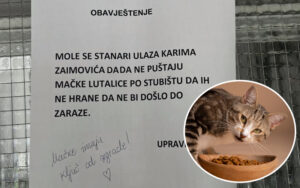 OBAVJEŠTENJE
MOLE SE STANARI ULAZA KARIMA
ZAIMOVIĆA DADA NE PUŠTAJU
MAČKE LUTALICE PO STUBIŠTU DA IH
NE HRANE DA NE BI DOŠLO DO
ZARAZE.
UPRAV
Mačke imaju
ključ od zgrade!